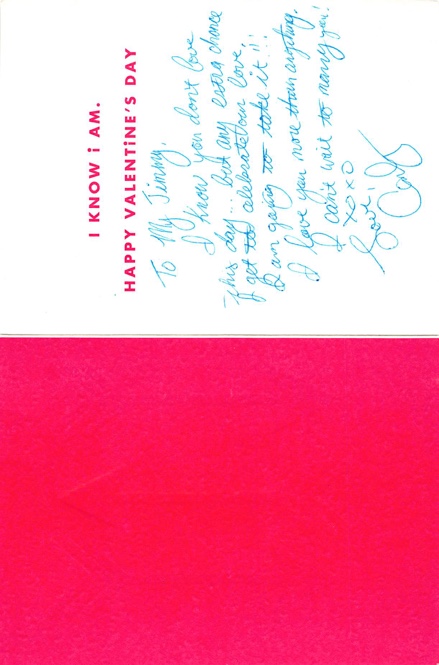 I KNOW i AM.
HAPPY VALENTiNE'S DAY
To My Jimmy,
I know you don't love
this day... but any extra chance
I get to celebrate our love,
I am going to take it!!!
I love you more than anything.
I can't wait to marry you!
XOXO
Love,